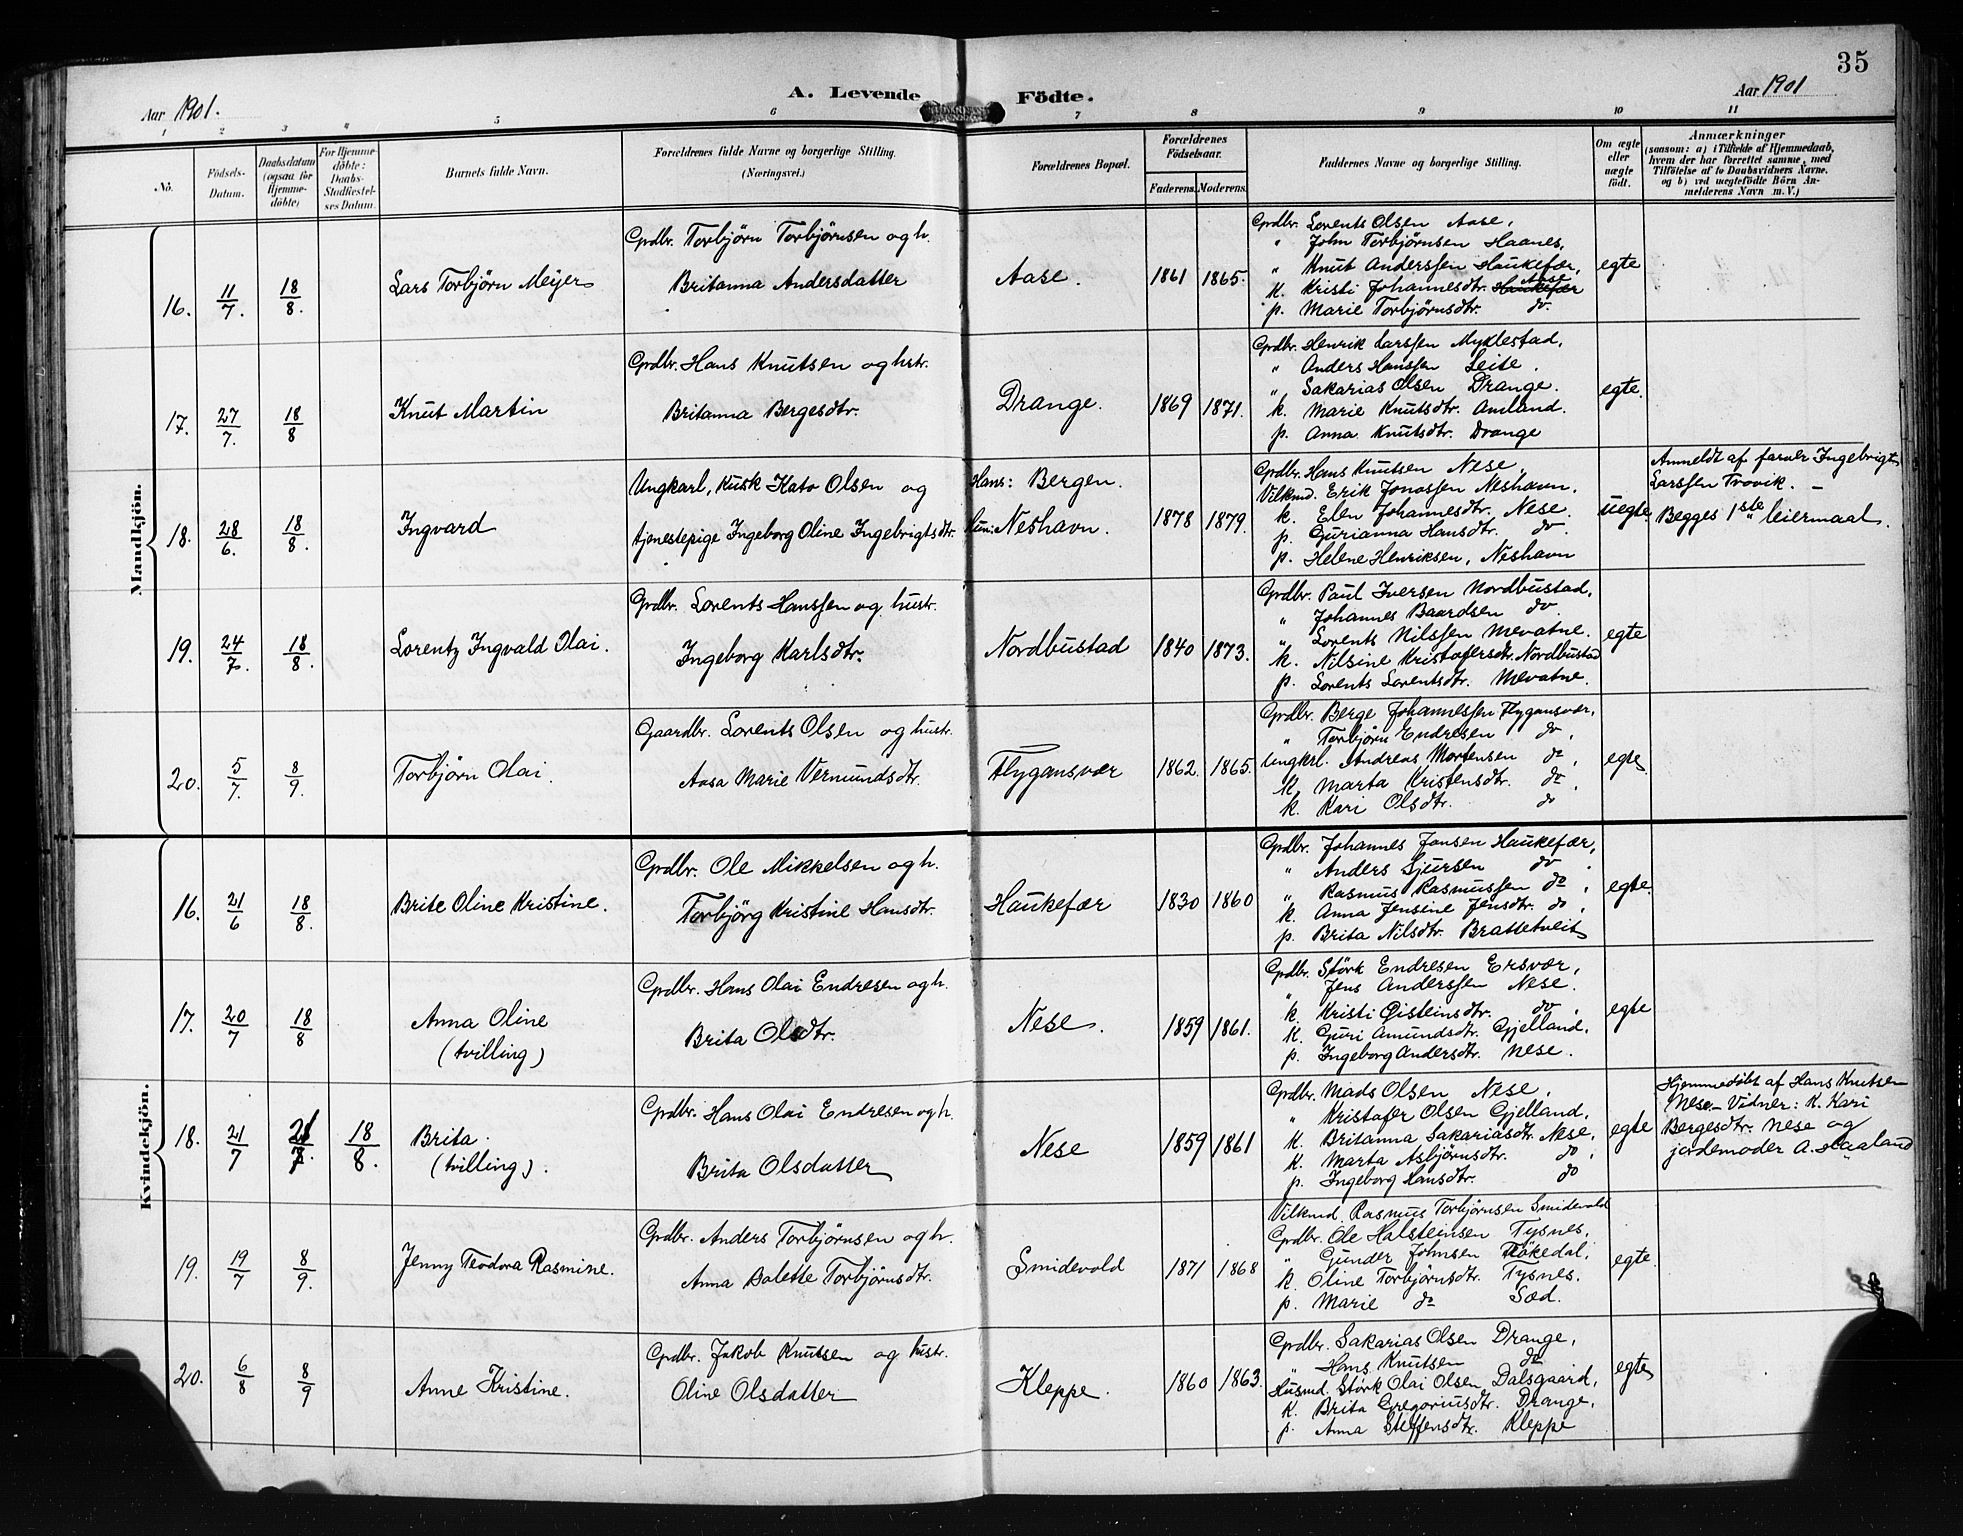 35
Aar 1901.
A. Levende Födte.
Aar 1901
1 2 3 4 5 6 7 8 9 10 11
No.
Födsels-Datum.
Daabsdatum (ogsaa for Hjemme-döbte)
For Hjemme-döbte: Daabs-Stadfæstel-ses Datum.
Barnets fulde Navn.
Forældrenes fulde Navne og borgerlige Stilling. (Næringsvei.)
Forældrenes Bopæl.
Forældrenes Födselsaar.
Faderens. Moderens.
Faddernes Navne og borgerlige Stilling.
Om ægte eller uægte födt.
Anmærkninger
(saasom: a) i Tilfælde af Hjemmedaab,
hvem der har forrettet samme, med
Tilföielse af to Daabsvidners Navne.
og b) ved uægtefödte Börn An-
melderens Navn m. V.)
Mandkjön.
16. 11/7. 18/8. Lars Torbjörn Meyer
Grdbr. Torbjörn Torbjörnsen og h.
Britanna Andersdatter
Aase. 1861 1865.
Grdbr. Lorents Olsen Aase,
" John Torbjörnsen Haanes,
" Knut Anderssen Haukefær,
K. Kristi Johannesdtr. Haukefær Aase
p. Marie Torbjörnsdtr. do.
egte
17. 27/7. 18/8 Knut Martin
Grdbr. Hans Knutsen og hstr.
Britanna Bergesdtr.
Drange. 1869 1871.
Grdbr. Henrik Larssen Myklestad,
" Anders Hanssen Leite.
" Sakarias Olsen Drange.
k. Marie Knutsdtr. Amland.
p. Anna Knutsdtr. Drange
egte.
18. 28/6. 18/8. Ingvard
Ungkarl, Kusk Kato Olsen og
tjenestepige Ingeborg Oline Ingebrigtsdtr.
Hans: Bergen.
Hun: Neshavn.
1878 1879.
Grdbr. Hans Knutsen Nese,
Vilkmd. Erik Jonassen Neshavn.
k. Elen Johannesdtr. Nese.
p. Gurianna Hansdtr. do.
p. Helene Henriksen, Neshavn
uegte.
Anmeldt af farver Ingebrigt
Larssen Trovik. –
Begges 1ste leiermaal.
19. 24/7. 18/8. Lorentz Ingvald Olai.
Grdbr. Lorents Hanssen og hustr.
Ingeborg Karlsdtr.
Nordbustad 1840 1873.
Grdbr. Paul Iversen Nordbustad,
" Johannes Baardsen do.
" Lorents Nilssen Mevatne.
k. Nilsine Kristofersdtr. Nordbustad
p. Lorents Lorentsdtr. Mevatne.
egte
20. 5/7. 8/9. Torbjörn Olai.
Gaardbr. Lorents Olsen og hustr.
Aasa Marie Vermundsdtr.
Flygansvær 1862. 1865.
Grdbr. Berge Johannessen Flygansvær,
" Torbjörn Endresen do,
Ungkrl. Andreas Mortensen do,
K. Marta Kristensdtr. do,
k. Kari Olsdtr. do
egte
Kvindekjön.
16. 21/6 18/8. Brite Oline Kristine.
Grdbr. Ole Mikkelsen og h.
Torbjörg Kristine Hansdtr.
Haukefær 1830 1860
Grdbr. Johannes Jonsen Haukefær,
" Anders Sjursen do.
" Rasmus Rasmussen do,
k. Anna Jensine Jensdtr. do,
p. Brita Nilsdtr. Brattetveit
egte.
17. 20/7 18/8 Anna Oline
(tvilling)
Grdbr. Hans Olai Endresen og h.
Brita Olsdtr.
Nese. 1859 1861.
Grdbr. Störk Endresen Ersvær,
" Jens Anderssen Nese.
k. Kristi Öisteinsdtr. do,
K. Guri Amundsdtr. Gjelland,
p. Ingeborg Andersdtr. Nese.
egte
18. 21/7 21/7. 18/8. Brita.
(tvilling).
Grdbr. Hans Olai Endresen og h.
Brita Olsdatter
Nese 1859 1861
Grdbr. Mads Olsen Nese,
" Kristofer Olsen Gjelland,
K. Britanna Sakariasdtr. Nese,
K. Marta Asbjörnsdtr. do,
p. Ingeborg Hansdtr. do
egte
Hjemmedöbt af Hans Knutsen
Nese – Vidner: K. Kari
Bergesdtr. Nese og
jordemoder A. Haaland
19. 19/7 8/9. Jenny Teodora Rasmine.
Grdbr. Anders Torbjörnsen og h.
Anna Bolette Torbjörnsdtr.
Smidevold 1871 1868
Vilkmd. Rasmus Torbjörnsen Smidevold
Grdbr. Ole Halsteinsen Tysnes,
" Gunder Johnsen Rökedal,
k. Oline Torbjörnsdtr. Tysnes.
p. Marie do Sæd.
egte.
20. 6/8 8/9 Anne Kristine.
Grdbr. Jakob Knutsen og hustr.
Oline Olsdatter
Kleppe. 1860 1863.
Grdbr. Sakarias Olsen Drange,
" Hans Knutsen do
Husmd. Störk Olai Olsen Dalsgaard,
K. Brita Gregoriusdtr. Drange,
p. Anna Steffensdtr. Kleppe
egte